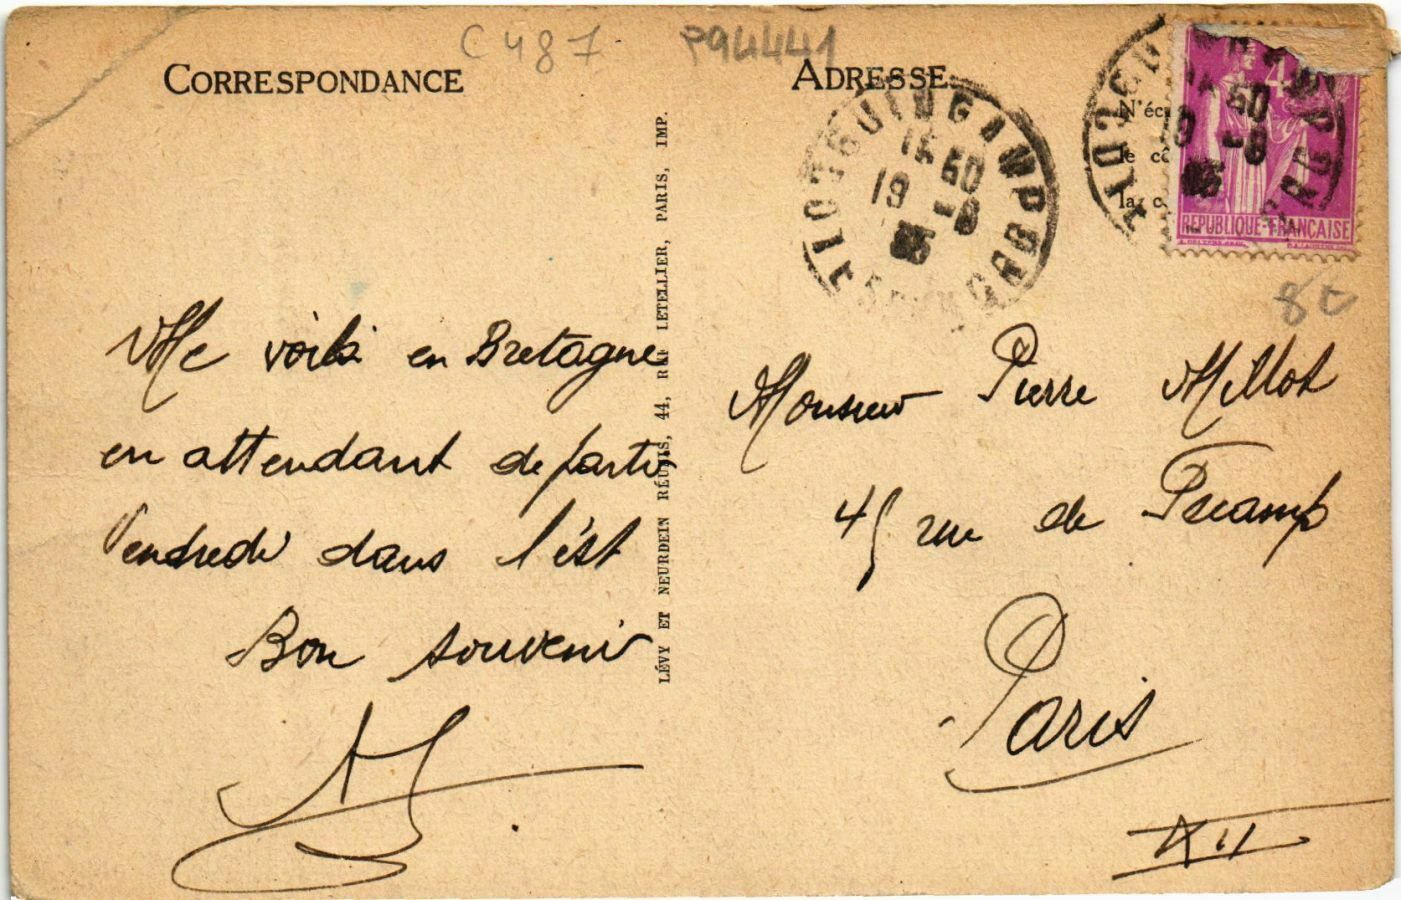 C 487 P94441
CORRESPONDANCE
ADRESSE
N'éc
le cô
la c
RÉPUBLIQUE-FRANÇAISE
GUINGAMP
15 50
19 -8
35
15 50
19 -8
35
80
Me voilà en Bretagne
en attendant de partir
Vendredi dans l'est
Bon souvenir
LÉVY ET NEURDEIN RÉUNIS, 44, RUE LETELLIER, PARIS, IMP.
Monsieur Pierre Millot
45 rue de Fécamp
Paris
XII